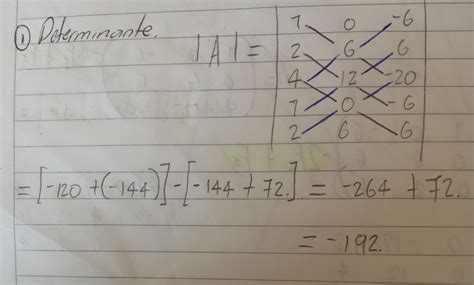 ① Determinante.
|A| =
1 0 -6
2 6 6
4 12 -20
1 0 -6
2 6 6
= [-120 + (-144)] - [-144 + 72.] = -264 + 72.
= -192.